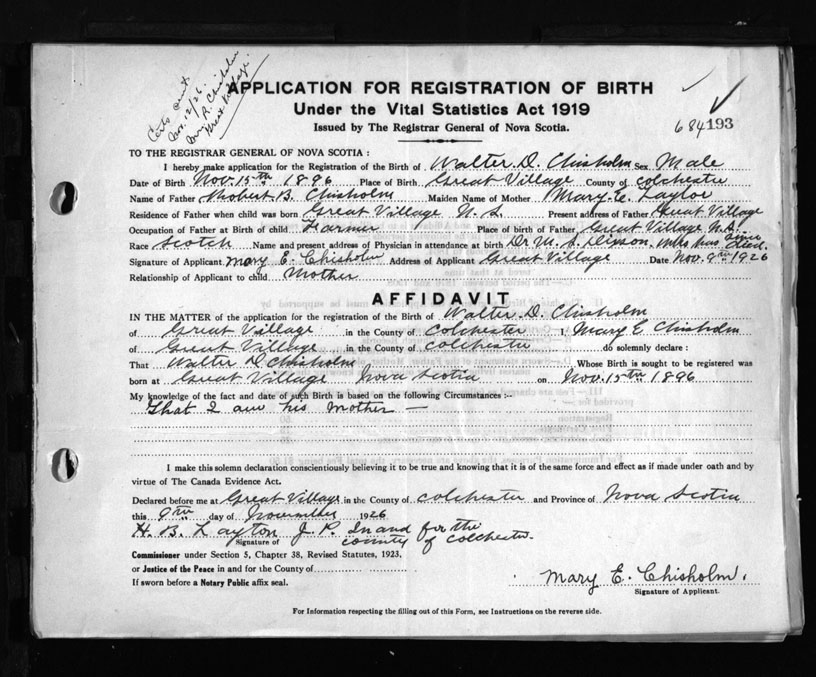 Certs sent
Nov. 12/26
Mrs R. Chisholm
Great Village.
APPLICATION FOR REGISTRATION OF BIRTH
Under the Vital Statistics Act 1919
Issued by The Registrar General of Nova Scotia.
684193
TO THE REGISTRAR GENERAL OF NOVA SCOTIA :
I hereby make application for the Registration of the Birth of Walter. D. Chisholm Sex Male
Date of Birth Nov. 15th 1896 Place of Birth Great Village County of Colchester
Name of Father Robert B. Chisholm Maiden Name of Mother Mary. E. Taylor
Residence of Father when child was born Great Village N. S. Present address of Father Great Village
Occupation of Father at Birth of child Farmer Place of birth of Father Great Village N.S.
Race Scotch Name and present address of Physician in attendance at birth Dr M. who has since died.
Signature of Applicant Mary E. Chisholm Address of Applicant Great Village Date Nov. 9th 1926
Relationship of Applicant to child Mother
AFFIDAVIT
IN THE MATTER of the application for the registration of the Birth of Walter. D. Chisholm
of Great Village in the County of Colchester I Mary E. Chisholm
of Great Village in the County of Colchester do solemnly declare :
That Walter D Chisholm Whose Birth is sought to be registered was
born at Great Village Nova Scotia on Nov. 15th 1896
My knowledge of the fact and date of such Birth is based on the following Circumstances :-
That I am his Mother —
I make this solemn declaration conscientiously believing it to be true and knowing that it is of the same force and effect as if made under oath and by
virtue of The Canada Evidence Act.
Declared before me at Great Village in the County of Colchester and Province of Nova Scotia
this 9th day of November 1926
H. B. Layton J. P. In and for the
Signature of County of Colchester.
Commissioner under Section 5, Chapter 38, Revised Statutes, 1923.
or Justice of the Peace in and for the County of
If sworn before a Notary Public affix seal.
Mary E. Chisholm.
Signature of Applicant.
For Information respecting the filling out of this Form, see Instructions on the reverse side.